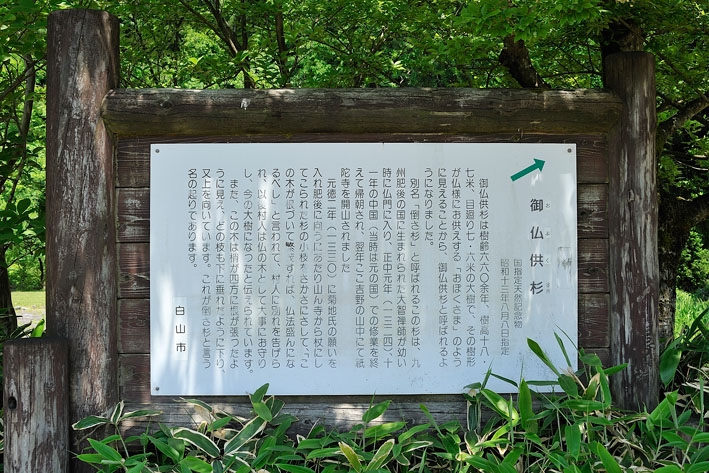 御仏供杉
おぶくすぎ
国指定天然記念物
昭和十三年八月八日指定
御仏供杉は樹齢六八〇余年、樹高十八・
七米、目廻り七・六米の大樹で、その樹形
が仏様にお供えする「おぼくさま」のよう
に見えることから、御仏供杉と呼ばれるよ
うになりました。
別名「倒さ杉」と呼ばれるこの杉は、九
州肥後の国に生まれられた大智禅師が幼い
時に仏門に入り、正中元年（一三二四）、十
一年の中国（当時は元の国）での修業を終
えて帰朝され、翌年ここ吉野の山中にて祇
陀寺を開山されました
元徳二年（一三三〇）に菊地氏の願いを
入れ肥後に向うにあたり山ん寺から杖にし
てこられた杉の小枝をさかさにさして「こ
の木が根づいて繁ますれば、仏法盛んにな
るべし」と言われて、村人に別れを告げら
れ、以後村人は仏の木として大事にお守り
し、今の大樹になったと伝えられています。
また、この木は梢が四方に根が張ったよ
うに見え、どの枝も下に垂れたように下り、
又上を向いています。これが倒さ杉と言う
名の起りであります。
白山市